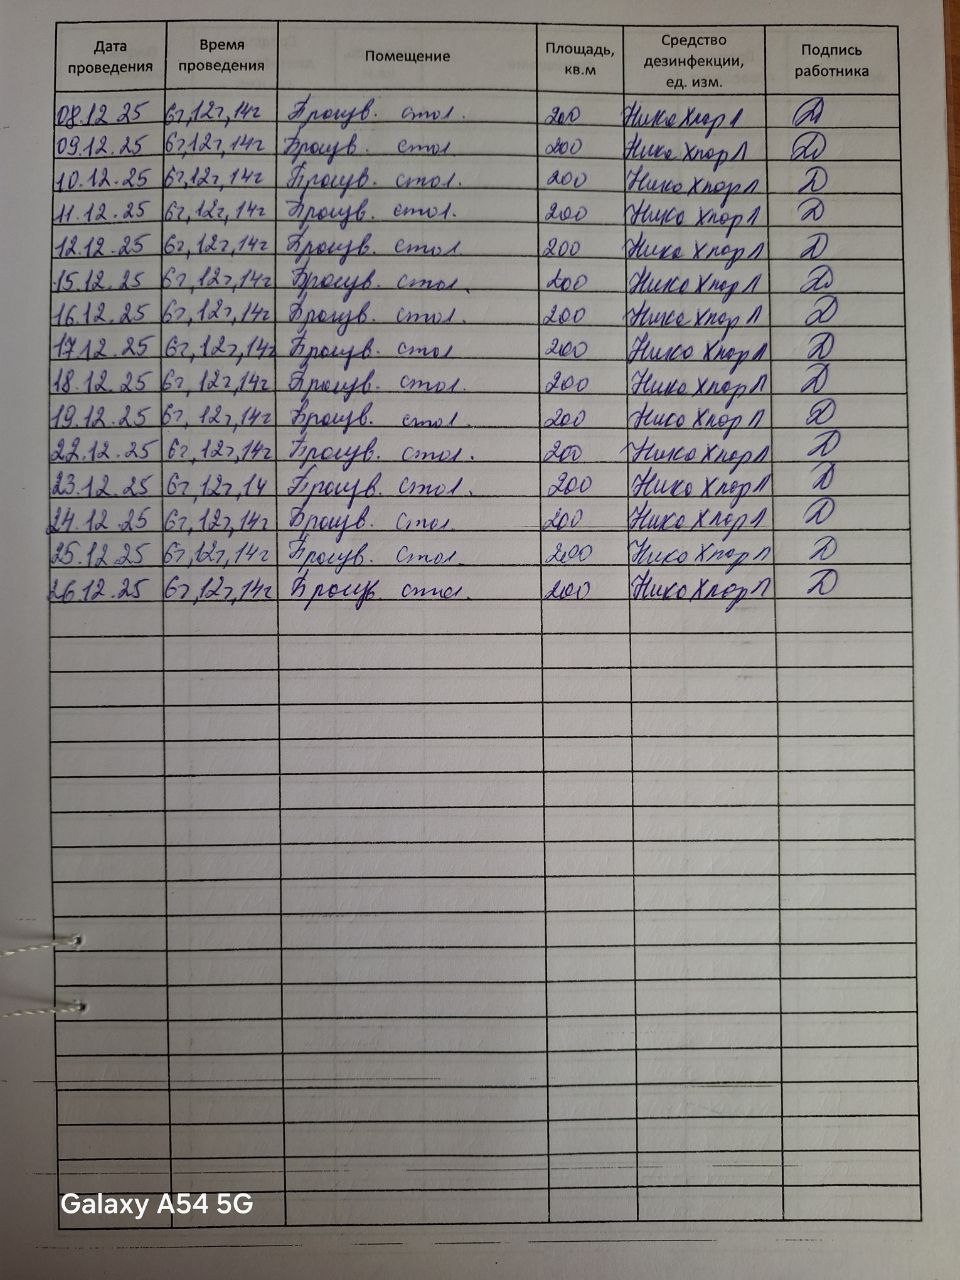 Дата проведения Время проведения Помещение Площадь, кв.м Средство дезинфекции, ед. изм. Подпись работника
08.12.25 6ч,12ч,14ч стол. 200 НикаХлорЛ Д
09.12.25 6ч,12ч,14ч стол. 200 Ника ХлорЛ Д
10.12.25 6ч,12ч,14ч стол. 200 Ника ХлорЛ Д
11.12.25 6ч,12ч,14ч стол. 200 Ника ХлорЛ Д
12.12.25 6ч,12ч,14ч стол. 200 Ника ХлорЛ Д
15.12.25 6ч,12ч,14ч стол. 200 Ника ХлорЛ Д
16.12.25 6ч,12ч,14ч стол. 200 Ника ХлорЛ Д
17.12.25 6ч,12ч,14ч стол 200 Ника ХлорЛ Д
18.12.25 6ч,12ч,14ч стол. 200 Ника ХлорЛ Д
19.12.25 6ч,12ч,14ч стол. 200 Ника ХлорЛ Д
22.12.25 6ч,12ч,14ч стол. 200 Ника ХлорЛ Д
23.12.25 6ч,12ч,14 стол. 200 Ника ХлорЛ Д
24.12.25 6ч,12ч,14ч стол. 200 Ника ХлорЛ Д
25.12.25 6ч,12ч,14ч стол. 200 Ника ХлорЛ Д
26.12.25 6ч,12ч,14ч стол. 200 Ника ХлорЛ Д
Galaxy A54 5G